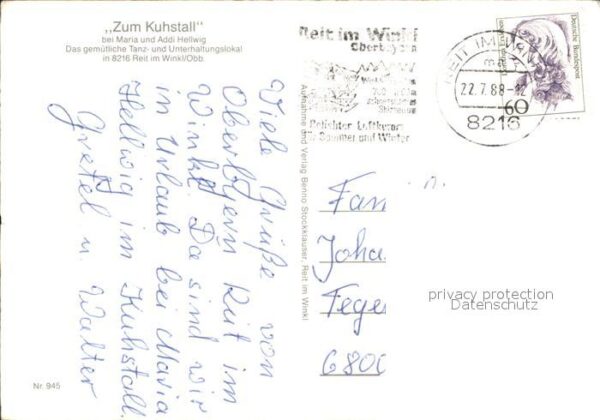 „Zum Kuhstall"
bei Maria und Addi Hellwig
Das gemütliche Tanz- und Unterhaltungslokal
in 8216 Reit im Winkl/Obb.
Viele Grüße von
Oberbyern Reit im
Winkl. Da sind wir
in Urlaub bei Maria
Hellwig im Kuhstall.
Gretel u. Walter
Nr. 945
Aufnahme und Verlag Benno Stockklauser, Reit im Winkl
Reit im Winkl
Oberbayern
Beliebter Luftkurort
Sommer und Winter
REIT IM WINKL
22.7.88-12
8216
Deutsche Bundespost
60
Fam
Joha
Fege
680
privacy protection
Datenschutz